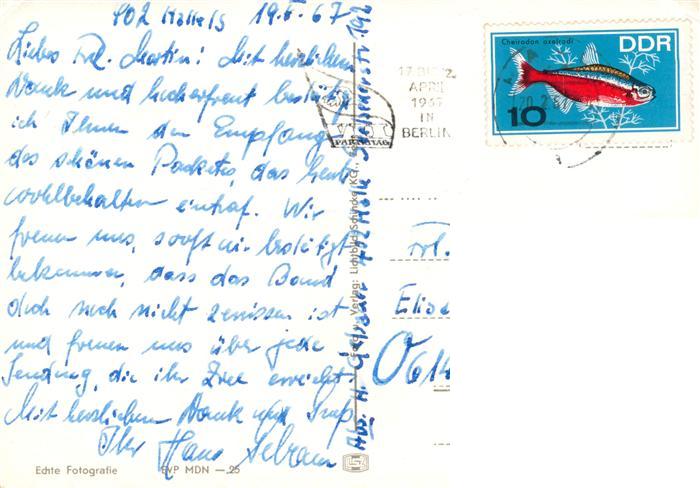 402 Halle/S 19.2.67
Liebes Frl. Martin! Mit herzlichem
Dank und hocherfreut bestätige
ich Ihnen den Empfang
des schönen Paketes, das heute
wohlbehalten eintraf. Wir
freuen uns, sooft wir bestätigt
bekommen, dass das Band
doch noch nicht zerrissen ist
und freuen uns über jede
Sendung, die ihr Ziel erreicht.
Mit herzlichem Dank und Gruß
Ihr Hans
Echte Fotografie EVP MDN -,25
Verlag: Lichtbild-Schincke KG.,
Abs. H. 402 Halle
17. BIS 22.
APRIL
1967
IN
BERLIN
PARTEITAG
Cheirodon axelrodi
DDR
10
Frl.
Elise